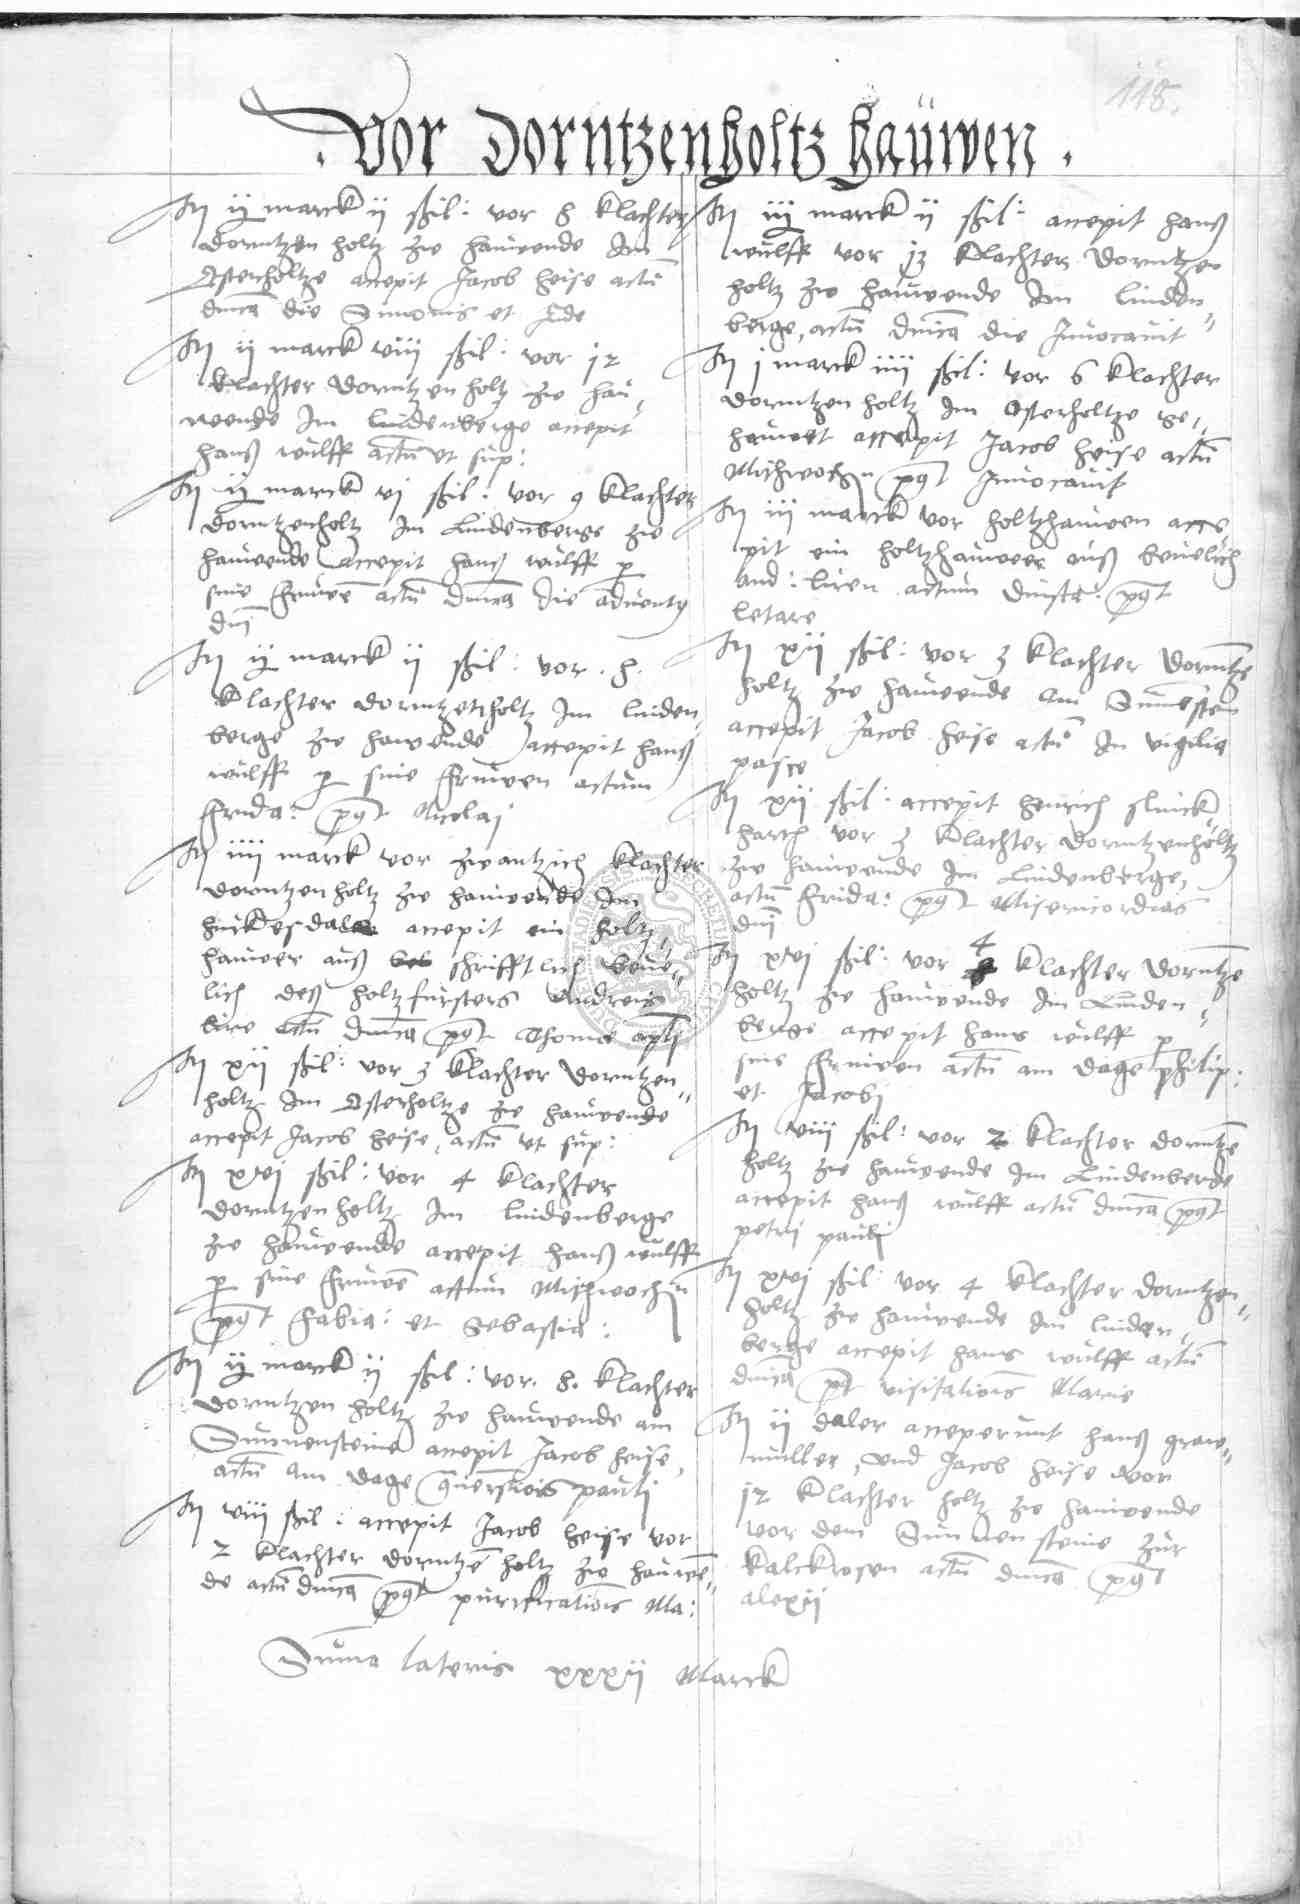 118.
. Vor Dorntzenholtz haüwen .
It ij marck ij ßil : vor 8 klachter
dorntzen holtz zw hauwende Im
Osterholtze accepit Jacob heise actū
dnīca die Simonis et Jude
It ij marck viij ßil : vor 12
klachter dorntzenholtz zw hau„
wende Im lindenberge accepit
hanß wulff actū vt sup :
It ij marck vj ßil : vor 9 klachter
dorntzenholtz Im Lindenberge zw
hauwende accepit hanß wulff p
sine fruwē actū dnīca die aduentq
dnī
It ij marck ij ßil : vor . 8 .
klachter dorntzenholtz Im linden„
berge zw hauwende accepit hanß
wulff p sine fruwen actum
frida : pqt Nicolaj
It iiij marck vor zwantzich klachter
dorntzenholtz zw hauwende Im
accepit ein holtz„
hauwer auß schrifftlich beue„
lich deß holtzfursters Andreis
lire actū dnīca pqt Thome apłj
It xij ßil : vor 3 klachter dorntzen„
holtz Im Osterholtze zw hauwende
accepit Jacob heise, actū vt sup :
It xvj ßil : vor 4 klachter
dorntzenholtz Im lindenberge
zw hauwende accepit hanß wulff
p sine fruwē actum Mithwochn
pqt fabia : et Sebastia :
It ij marck ij ßil : vor . 8 . klachter
dorntzen holtz zw hauwende am
Sunnensteine accepit Jacob heise,
actū Am dage 9uersiōis paulj
It viij ßil : accepit Jacob heise vor
2 klachter dorntzē holtz zw hauwē„
de actū dnīca pqt purificatiōis Ma :
It iij marck ij ßil : accepit hanß
wulff vor 13 klachter dorntzen
holtz zw hauwende Im linden„
berge, actū dnīca die Inuocauit
It j marck iiij ßil : vor 6 klachter
dorntzenholtz Im Osterholtze ge„
hauwet accepit Jacob heise actū
Mithwochn pqt Inuocauit
It iij marck vor holtzhauwen acce
pit ein holtzhauwer auß beuelich
And : liren actum dinsta : pqt
letare
It xij ßil : vor 3 klachter dorntzē
holtz zw hauwende Am Sunnestein
accepit Jacob heise actū In vigilia
pasce
It xij ßil : accepit henrich
vor 3 klachter dorntzenholtz
zw hauwende Im Lindenberge,
actū frida : pqt Misericordias
dnī
It xvj ßil : vor 4 klachter dorntzē
holtz zw hauwende Im Linden„
berge accepit hans wulff p
sine fruwen actū am dage philip :
et Jacobj
It viij ßil : vor 2 klachter dorntzē
holtz zw hauwende Im Lindenberge
accepit hanß wulff actū dnīca pqt
petri paulj
It xvj ßil : vor 4 klachter dorntzen„
holtz zw hauwende Im linden„
berge accepit hans wulff actū
dnīca pt visitatiōis Marie
It ij daler acceperunt hanß graw„
muller, vnd Jacob heise vor
12 klachter holtz zw hauwende
vor dem Sunnensteine zur
kalckrosen actū dnīca pqt
alexij
Suma lateris xxxij Marck